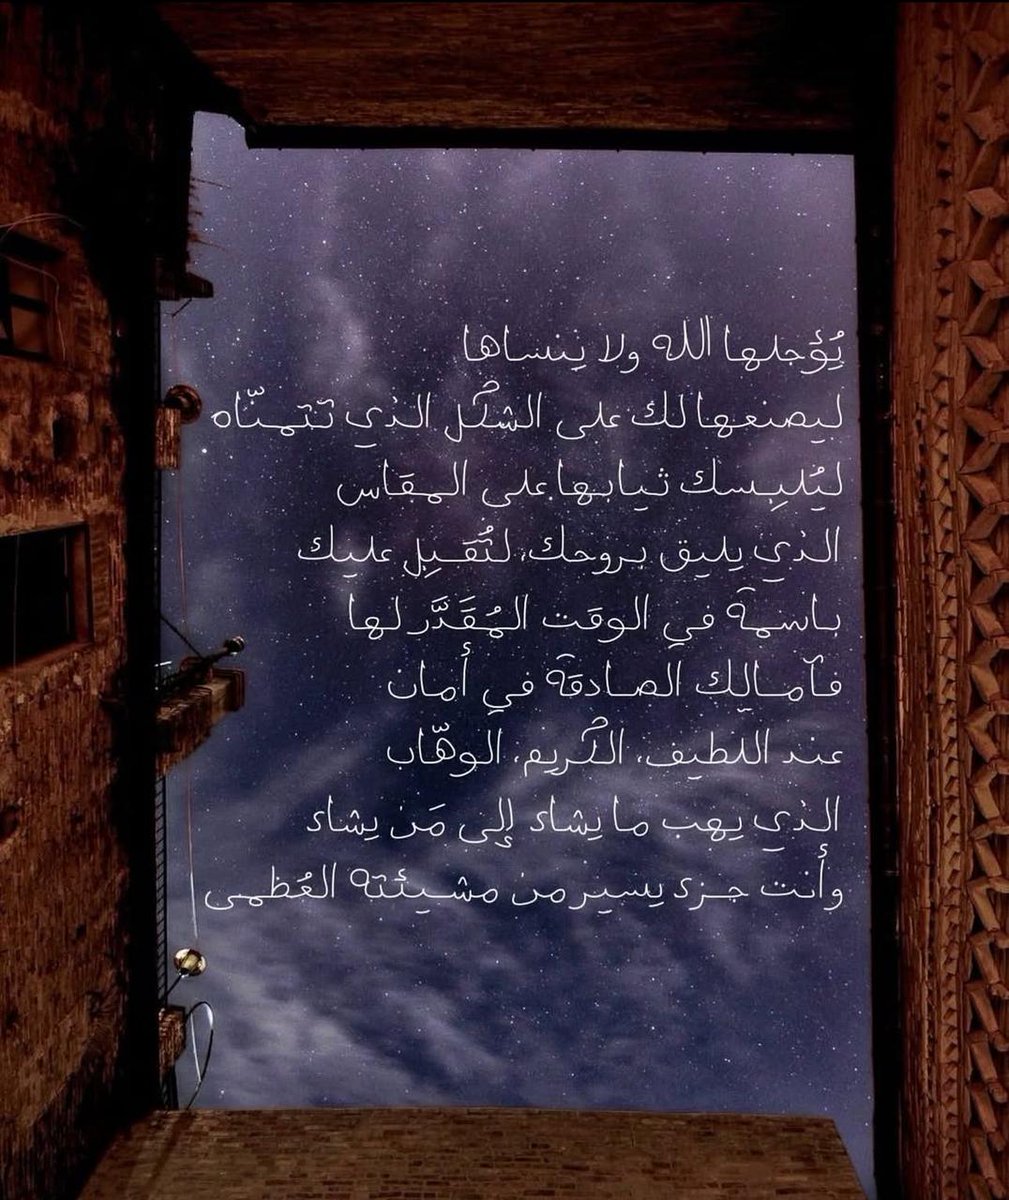 يُؤجلها الله ولا ينساها
ليصنعها لك على الشكل الذي تتمنّاه
ليُلبِسك ثيابها على المقَاس
الذي يليق بروحك، لتُقبِل عليك
باسمة في الوقَت المُقَدَّر لها
فآمالك الصادقة في أمان
عند اللطيف، الكريم، الوهّاب
الذي يهب ما يشاء إلى مَن يشاء
وأنت جزء يسير من مشيئته العُظمى